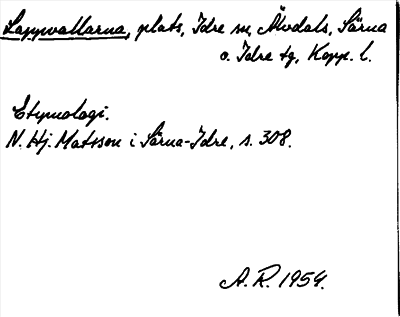 Lappvallarna, plats, Idre sn, Älvdals, Särna
o. Idre tg, Kopp. l.
Etymologi.
N. Hj. Matsson i Särna-Idre, s. 308.
A. R. 1954.